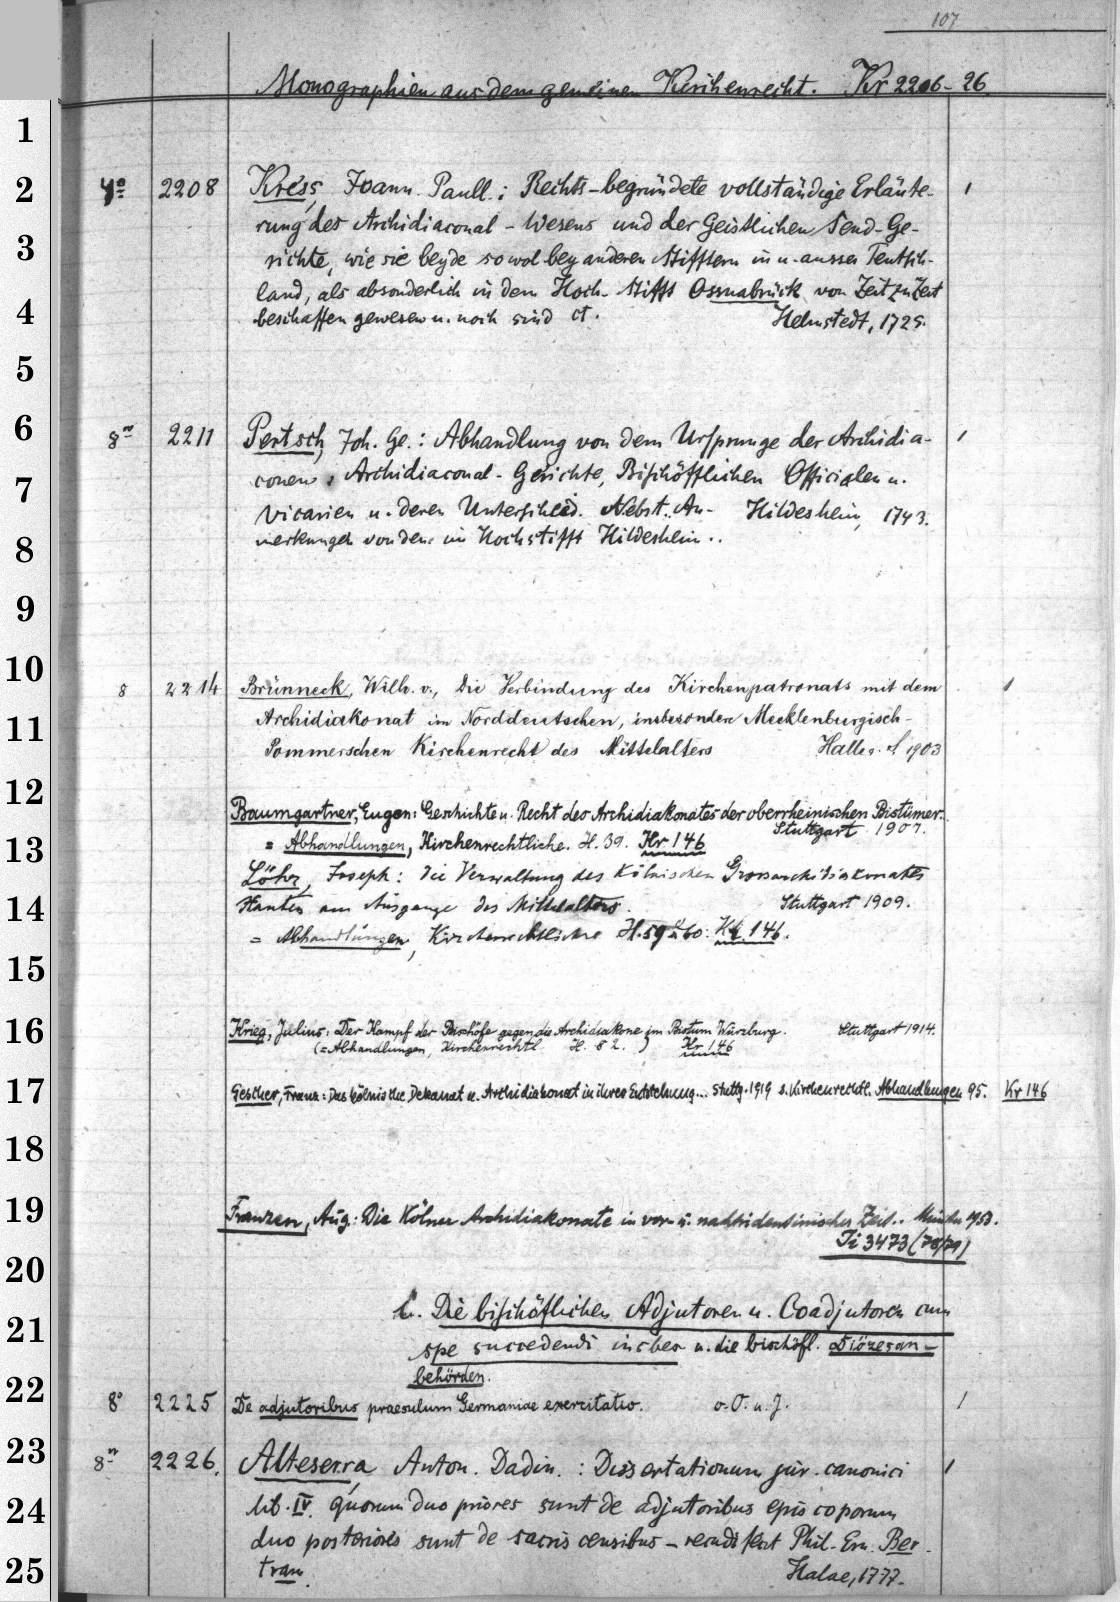 107
Monographien aus dem gemeinen Kirchenrecht. Kr 2206-26
1
2 4° 2208 Kress, Joann. Paull.: Rechts-begründete vollständige Erläute- 1
rung des Archidiaconal-Wesens und der Geistlichen Send-Ge-
3 richte, wie sie beyde sowol bey anderen Stifftern in u. ausser Teutsch-
land, als absonderlich in dem Hoch-Stifft Ossnabrück von Zeit zu Zeit
4 beschaffen gewesen u. noch sind ct. Helmstedt, 1725.
5
6 8° 2211 Pertsch, Joh. Ge.: Abhandlung von dem Ursprunge der Archidia- 1
7 conen, Archidiaconal-Gerichte, Bischöfflichen Officialen u.
Vicarien u. deren Unterschied. Nebst An- Hildesheim, 1743.
8 merkungen von den im Hochstifft Hildesheim..
9
10 8 2214 Brünneck, Wilh. v., Die Verbindung des Kirchenpatronats mit dem 1
11 Archidiakonat im Norddeutschen, insbesondere Mecklenburgisch-
Pommerschen Kirchenrecht des Mittelalters Halle a. S 1903
12 Baumgartner, Eugen: Geschichte u. Recht des Archidiakonates der oberrheinischen Bistümer..
Stuttgart 1907.
13 = Abhandlungen, Kirchenrechtliche. H. 39. Kr 146
Löhr, Joseph: Die Verwaltung des Kölnischen Grossarchidiakonates
14 Xanten am Ausgange des Mittelalters. Stuttgart 1909.
= Abhandlungen, Kirchenrechtliche H. 59 u 60: Kr 146.
15
16 Krieg, Julius: Der Kampf der Bischöfe gegen die Archidiakone im Bistum Würzburg. Stuttgart 1914.
(= Abhandlungen, Kirchenrechtl. H. 82.) Kr 146
17 Gescher, Franz: Das kölnische Dekanat u. Archidiakonat in ihrer Entstehung... Stuttg. 1919 s. Kirchenrechtl. Abhandlungen 95. Kr 146
18
19 Franzen, Aug: Die Kölner Archidiakonate in vor- u. nachtridentinischer Zeit.. Münster 1953.
Ti 3473 (78/79)
20
21 C. Die bischöflichen Adjutoren u. Coadjutoren cum
spe succedendi insbes u. die bischöfl. Diözesan-
22 behörden.
8° 2225 De adjutoribus praesulum Germaniae exercitatio. o. O. u. J. 1
23 8° 2226. Alteserra Anton. Dadin.: Dissertationum jur. canonici 1
24 lib. IV. quorum duo priores sunt de adjutoribus episcoporum
duo posteriores sunt de sacris censibus - recudi fecit Phil. Ern. Ber-
25 tram. Halae, 1777.